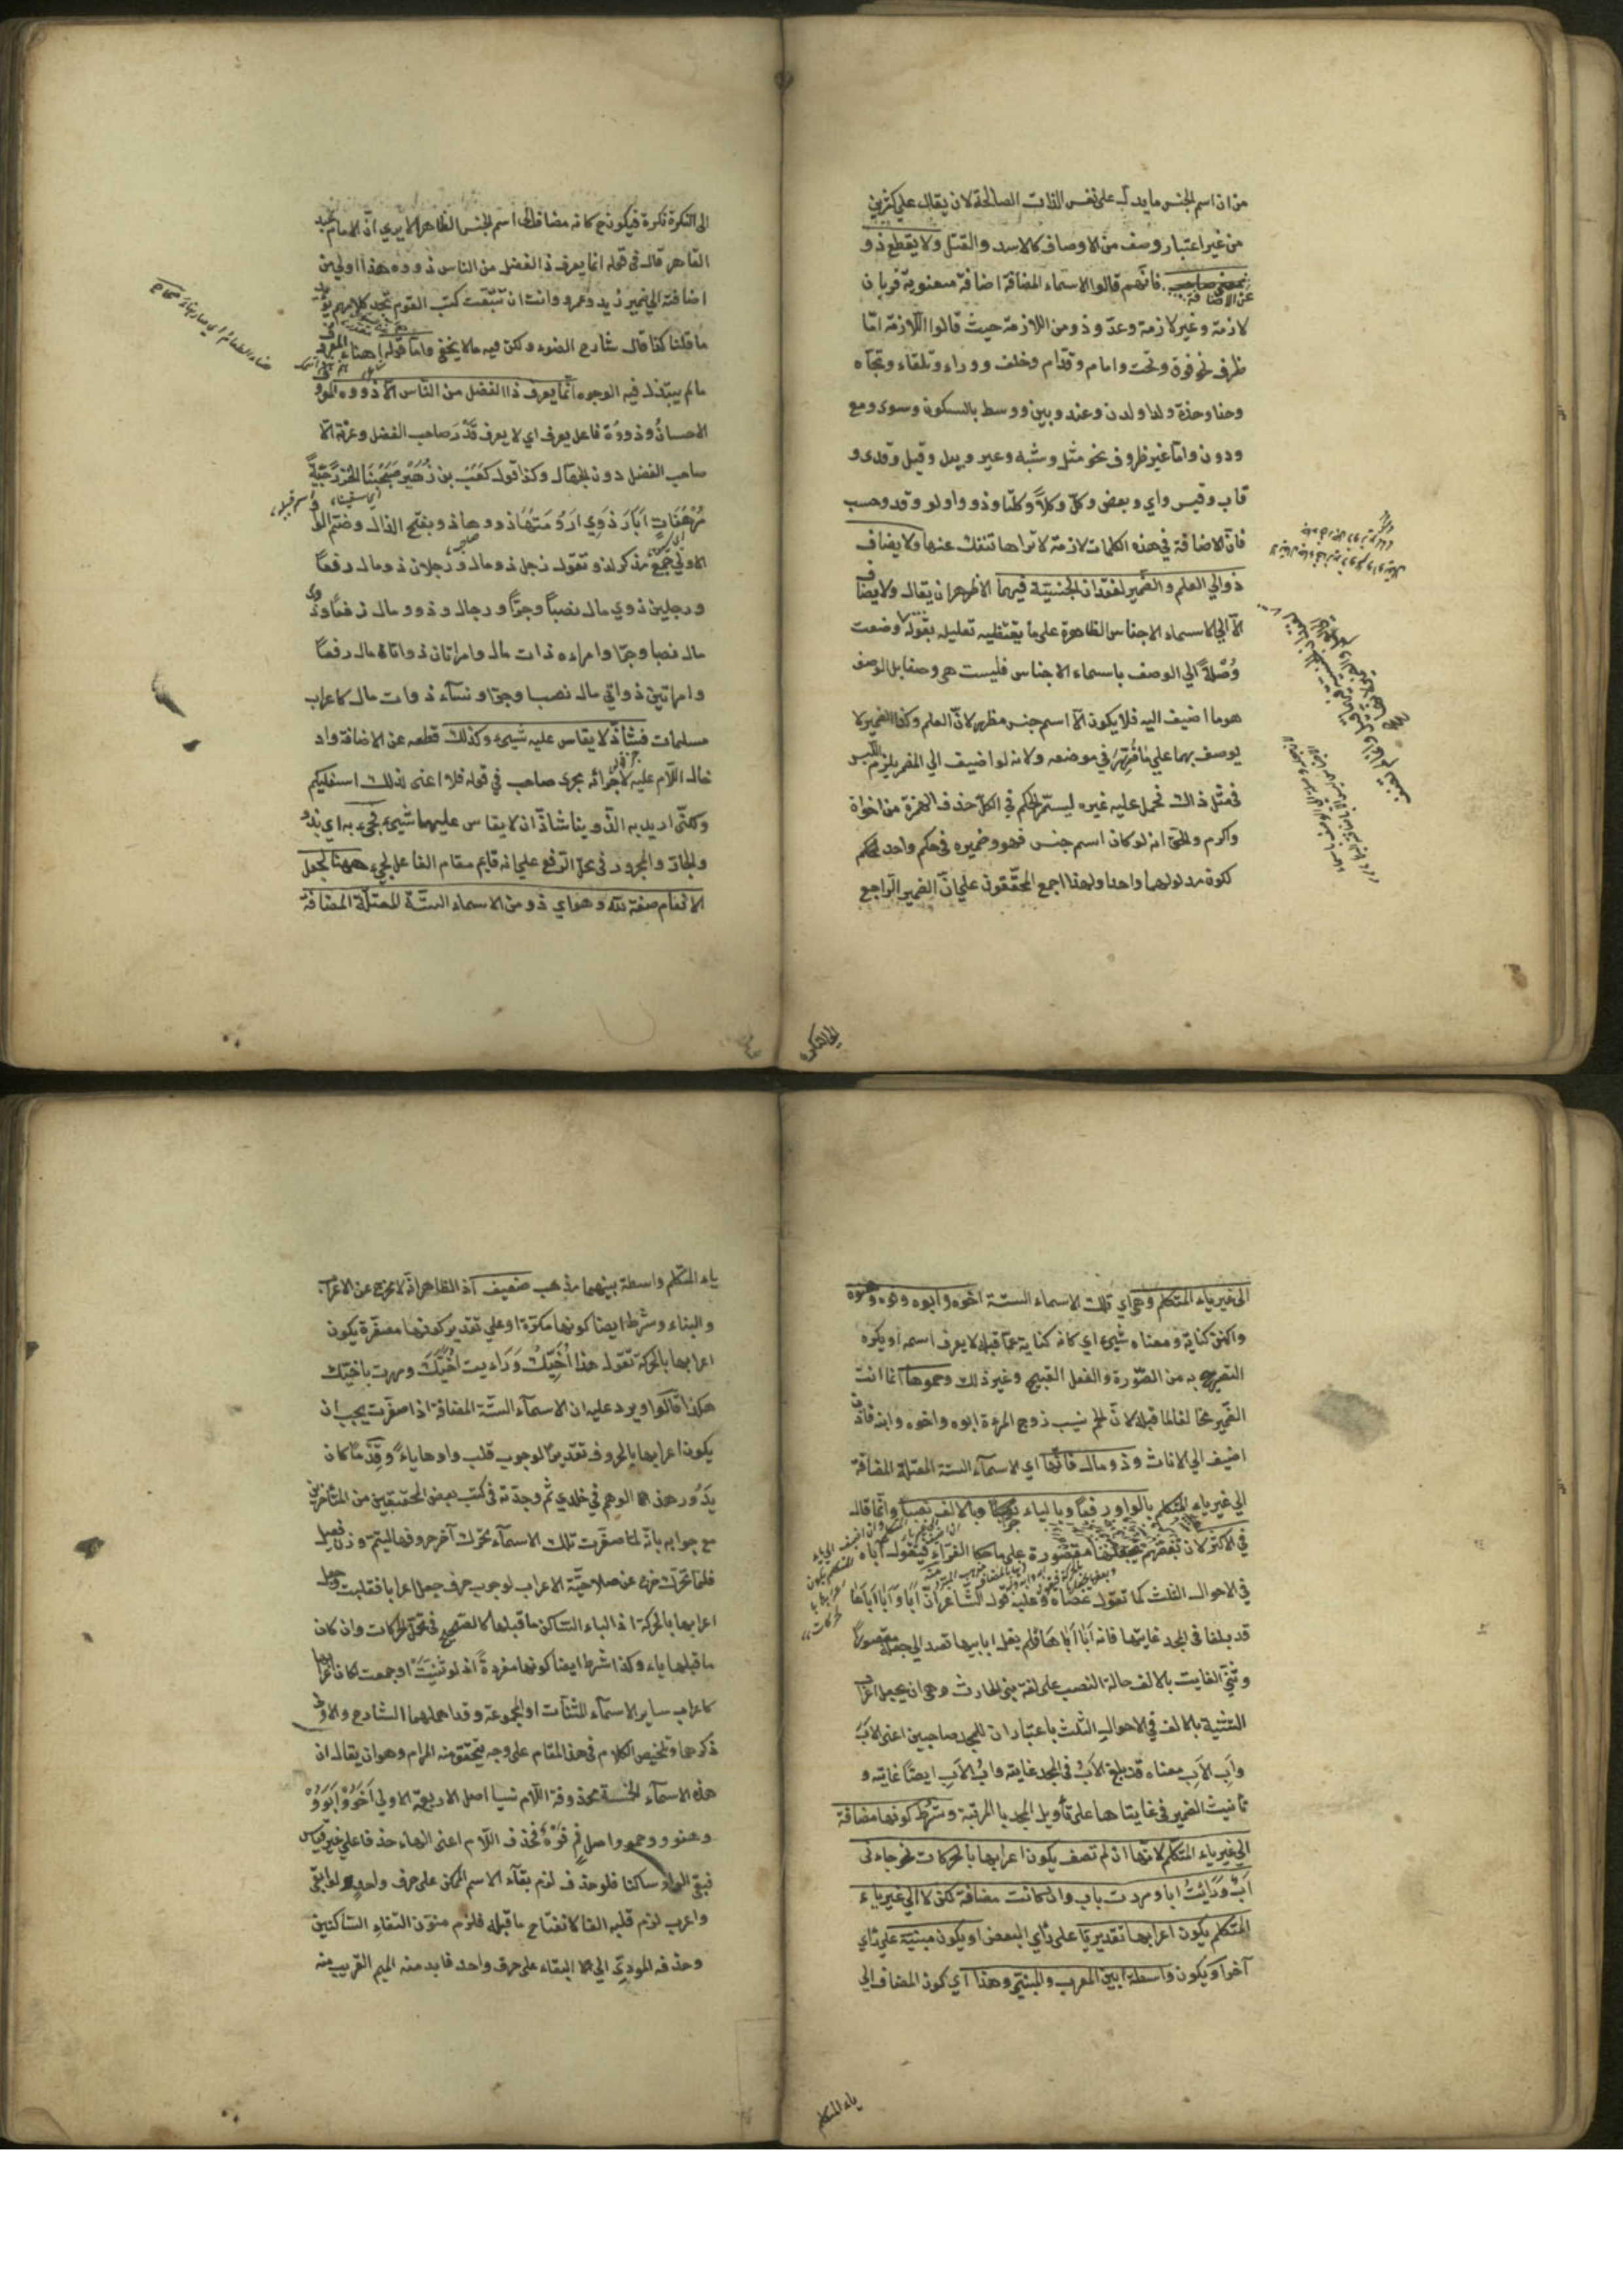 من ان اسم الجنس ما يدل على نفس الذات الصالحة لان يقال على كثيرين
من غير اعتبار وصف من الاوصاف كالاسد والقتل ولا يقطع ذو
بمعنى صاحب عن الاضافة فانهم قالوا الاسماء المضافة اضافة معنوية ضربان
لازمة وغير لازمة وعدّ وذو من اللازمة حيث قالوا اللازمة امّا
ظرف نحو فوق وتحت وامام وقدّام وخلف ووراء وتلقاء وتجاه
وحذا وحذة ولدا ولدن وعند وبين ووسط بالسكون وسوى ومع
ودون وامّا غير ظروف نحو مثل وشبه وغير وبيد وقيل وقدى و
قاب وقيس واي وبعض وكلّ وكلا وكلتا وذو واولو وقد وحسب
فانّ الاضافة في هذه الكلمات لازمة لا تراها تنفك عنها ولا يضاف
ذو الي العلم والضمير لفقدان الجنسيّة فيهما الاظهر ان يقال ولا يضاف
الّا الي الاسماء الاجناس الظاهرة على ما يقتضيه تعليله بقوله وضعت
وُصْلةً الي الوصف باسماء الاجناس فليست هي وصفا بل الوصف
هو ما اضيف اليه فلا يكون الّا اسم جنس مظهر لانّ العلم وكذا الضمير لا
يوصف بهما علي ما قُرّر في موضعه ولانه لو اضيف الي المضمر يلزم اللبس
في مثل ذاك فحمل عليه غيره ليستمر الحكم في الكلّ حذف الهمزة من اخواة
واكرم والحق انه لو كان اسم جنس فهو وضميره في حكم واحد لحكم
كون مدلولهما واحدا ولهذا اجمع المحققون علي انّ الضمير الراجع
الى النكرة
الى النكرة نكرة فيكون ح كانه مضاف الى اسم الجنس الظاهر الا يري انّ الامام عبد
القاهر قال في قوله انما يعرف ذا الفضل من الناس ذووه هذا اولي من
اضافته الي ضمير زيد وعمرو وانت ان تتبّعت كتب القوم تجد كلامهم يؤيد
ما قلنا كذا قال شارح الضوء ولكن فيه ما لا يخفى وامّا قوله اهنأ المعروف
ما لم يبتذل فيه الوجوه انّما يعرف ذا الفضل من النّاس الّا ذووه المراد
الاحسان وذووه فاعل يعرف اي لا يعرف قَدْرَ صاحب الفضل وعزته الّا
صاحب الفضل دون الجهّال وكذا قول كَعْب بن زُهَيْر صَبَحْنَا الخزرجيّةَ
مُرْهَفَاتٍ اَبَارَ ذَوِي اَرُومَتِهَا ذووها ذو بفتح الذال وضمّ الواو
الاولى جمع مذكر لذو تقول رجل ذو مال ورجلان ذوا مال رفعاً
ورجلين ذوي مال نصباً وجرّاً ورجال ذوو مال رفعاً وذوي
مال نصبا وجرّا وامراءة ذات مال وامراتان ذواتا مال رفعاً
وامراتين ذواتي مال نصبا وجرّا ونسآء ذوات مال كاعراب
مسلمات فشاذّ لا يقاس عليه شيئ وكذلك قطعه عن الاضافة واد
خال اللّام عليه لاجرائه مجرى صاحب في قوله فلا اعنى لذلك اسفليكم
ولكنّي اريد به الذّوينا شاذّ ان لا يقاس عليهما شيئ نجيء به اي بذو
والجار والمجرور في محل الرفع علي انه قايم مقام الفاعل لجيء ههنا لجعل
الانعام صفة لله وهو اي ذو من الاسماء الستّة المعتلّة المضافة
الى غير ياء المتكلم وهي اي تلك الاسماء الستة اخوه وابوه وفوه وهنوه
والهن كناية ومعناه شيئ اي كانه كناية عمّا قبله لا يعرف اسمه او يكره
التصريح به من الصّورة والفعل القبيح وغير ذلك وحموها انما انت
الضّمير مخالفا لما قبله لانّ الحم نسيب زوج المرءة ابوه واخوه وابنه فاذن
اضيف الي الاناث وذو مال فانّها اي الاسمآء الستة المعتلة المضافة
الي غير ياء المتكلم بالواو رفعاً وبالياء جرّا وبالالف نصباً وانّما قال
في الاكثر لان بَعْضَهُم يجعلها مقصورة على ما حكا الفرّاء فيقول اباه
في الاحوال الثلث كما تقول عصاه وعليه قول الشّاعر انّ اَبَا وَاَبَا اَبَاهَا
قد بلغا في المجد غايتها فانه اَبَا اَبَاهَا فلم يقل ابا ابيها قصد الي جعله مقصوراً
وثنّي الغايت بالالف حالة النصب على لغة بني الحارث وهي ان يجعل اعراب
التثنية بالالف في الاحوال الثلث باعتبار ان للمجد صاحبين اعنى الابَ
وابِ الابِ معناه قد بلغ الابُ في المجد غايته وابُ الابِ ايضًا غايته و
تأنيث الضمير في غايتاها على تأويل المجد بالمرتبة وشرط كونها مضافة
الي غير ياء المتكلم لانّها ان لم تضف يكون اعرابها بالحركات نحو جاءنى
ابٌ ورَأيْتُ ابا ومررت باب وان كانت مضافة لكن لا الي غير ياء
المتكلم يكون اعرابها تقديريّا على رأي البعض او يكون مبنية على رأي
آخر او يكون واسطة بين المعرب والمبنيّ وهذا اي كون المضاف الي
ياء المتكلم
ياء المتكلم واسطة بينهما مذهب ضعيف اذ الظاهر انّه لا يخرج عن الاعراب
والبناء وشرط ايضا كونها مكبّرة او علي تقدير كونها مصغّرة يكون
اعرابها بالحركة تقول هذا اُخَيُّكَ وَرَاءيت اُخَيَّكَ ومررت باخيّك
هكذا قالوا ويرد عليه ان الاسمآء الستّة المضافة اذا صغّرت يجب ان
يكون اعرابها بالحروف تقديراً لوجوب قلب واوها ياءً وقِدْمًا كان
يَدُور هذا الوهم في خلدي ثم وجدته في كتب بعض المحققين من المتأخرين
مع جوابه بانّه لمّا صغّرت تلك الاسمآء تحرّك آخر حروفها ليتم وزن فُعيل
فلمّا تحرّك خرج عن صلاحيّة الاعراب لوجوب حرف جعل اعرابا فقلبت وجعل
اعرابها بالحركة اذ الياء السّاكن ما قبلها كالصحيح في تحمّل الحركات وان كان
ما قبلها ياء وكذا شرط ايضا كونها مفردةً اذ لو ثنّيَتْ او جمعت لكان اعرابها
كاعراب ساير الاسمآء المثنّات او المجموعة وقد اهملهما الشارح والاولى
ذكرها وتلخيص الكلام في هذا المقام على وجه يتحقّق منه المرام وهو ان يقال ان
هذه الاسمآء الخمسة محذوفة اللّام نسيا اصل الاربعة الاولي اَخَوٌ وَاَبَوٌ
وهنو وحمو واصل فم فَوْهٌ فحذف اللّام اعنى الهاء حذفا علي غير قياس
فبقي الواو ساكنا فلو حذف لزم بقآء الاسم المتمكن على حرف واحد ولو ابقي
واعرب لزم قلبه الفا لانفتاح ما قبله فلزم منون التقاء السّاكنين
وحذفه المودّي الي البقاء على حرف واحد فابدل منه الميم القريب منه